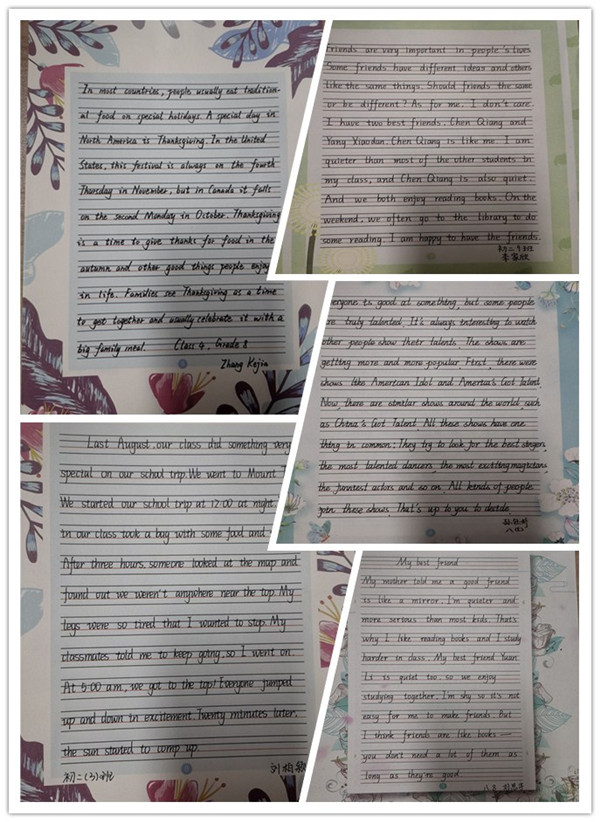 In most countries, people usually eat tradition-
al food on special holidays. A special day in
North America is Thanksgiving. In the United
States, this festival is always on the fourth
Thursday in November, but in Canada it falls
on the second Monday in October. Thanksgiving
is a time to give thanks for food in the
autumn and other good things people enjoy
in life. Families see Thanksgiving as a time
to get together and usually celebrate it with a
big family meal. Class 4, Grade 8
Zhang Kejia
Friends are very important in people's lives
Some friends have different ideas and others
like the same things. Should friends the same
or be different? As for me. I don't care
I have two best friends. Chen Qiang and
Yang Xiaodan. Chen Qiang is like me. I am
quieter than most of the other students in
my class, and Chen Qiang is also quiet.
And we both enjoy reading books. On the
weekend, we often go to the library to do
some reading. I am happy to have the friends.
初二9班
everyone is good at something, but some people
are truly talented. It's always interesting to watch
other people show their talents. The shows are
getting more and more popular. First, there were
shows like American Idol and America's Got Talent.
Now, there are similar shows around the world, such
as China's Got Talent. All these shows have one
thing in common: They try to look for the best singers,
the most talented dancers, the most exciting magicians,
the funniest actors and so on. All kinds of people
join these shows. That's up to you to decide.
Last August, our class did something very
special on our school trip. We went to Mount
We started our school trip at 12:00 at night
in our class took a bag with some food and
After three hours, someone looked at the map and
found out we weren't anywhere near the top. My
legs were so tired that I wanted to stop. My
classmates told me to keep going, so I went on.
At 5:00 a.m., we got to the top! Everyone jumped
up and down in excitement. Twenty minutes later,
the sun started to comp up.
初二(3)班
My best friend
My mother told me a good friend
is like a mirror. I'm quieter and
more serious than most kids. That's
why I like reading books and I study
harder in class. My best friend Yuan
Li is quiet too, so we enjoy
studying together. I'm shy so it's not
easy for me to make friends. But
I think friends are like books —
you don't need a lot of them as
long as they're good